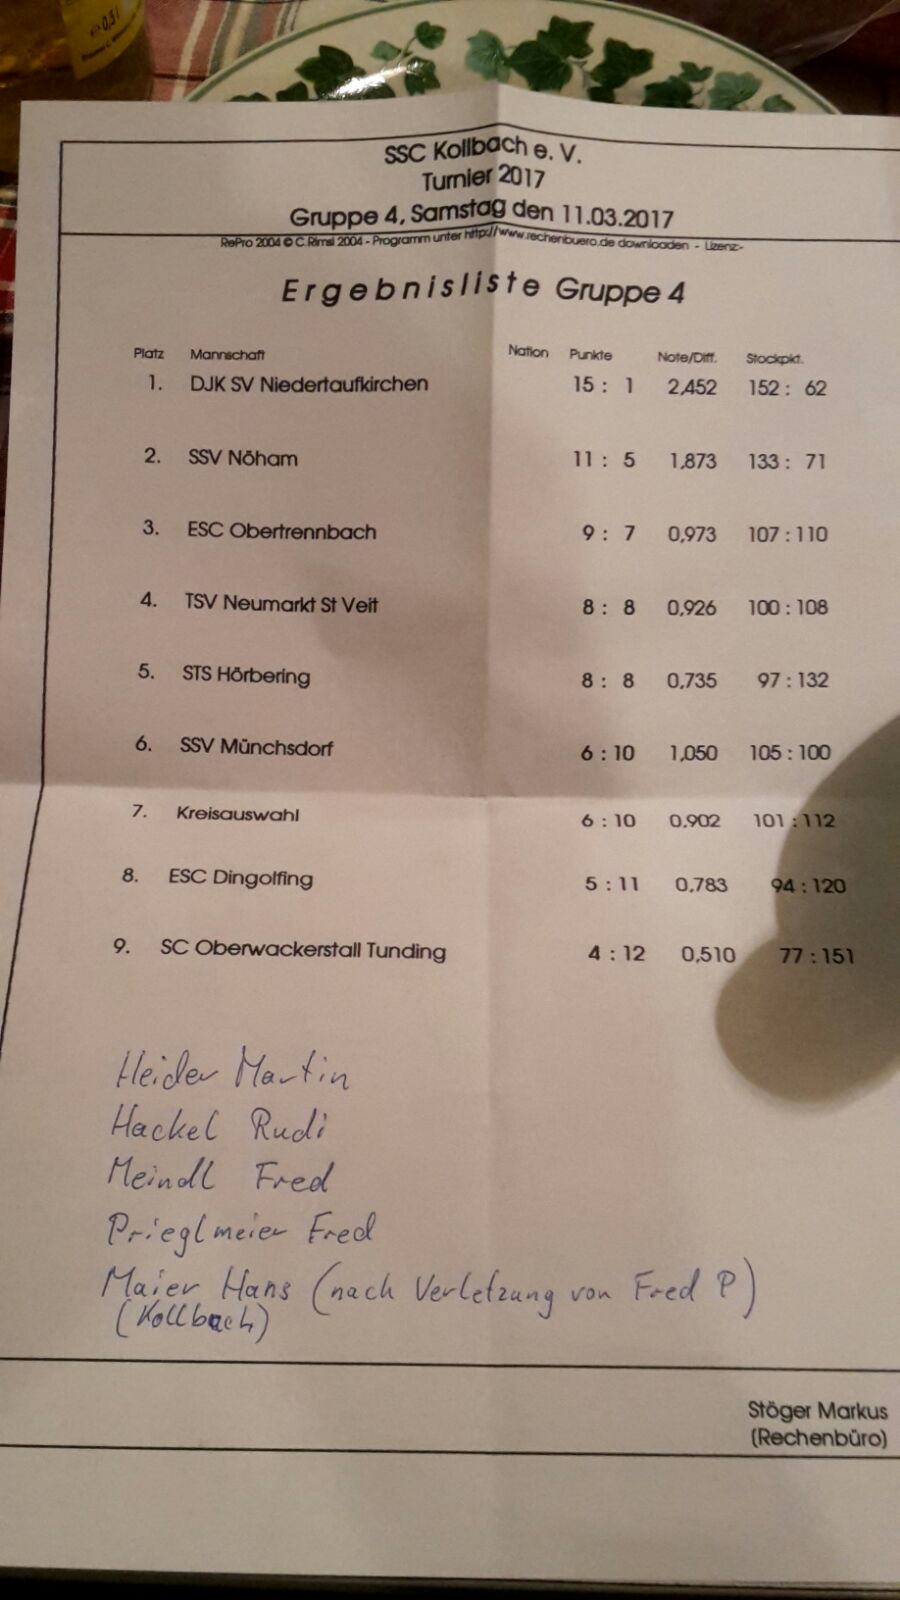 e0,5l
SSC Kollbach e. V.
Turnier 2017
Gruppe 4, Samstag den 11.03.2017
RePro 2004 © C.Rimsl 2004 - Programm unter http://www.rechenbuero.de downloaden - Lizenz:-
Ergebnisliste Gruppe 4
Platz Mannschaft Nation Punkte Note/Diff. Stockpkt.
1. DJK SV Niedertaufkirchen 15 : 1 2,452 152 : 62
2. SSV Nöham 11 : 5 1,873 133 : 71
3. ESC Obertrennbach 9 : 7 0,973 107 : 110
4. TSV Neumarkt St Veit 8 : 8 0,926 100 : 108
5. STS Hörbering 8 : 8 0,735 97 : 132
6. SSV Münchsdorf 6 : 10 1,050 105 : 100
7. Kreisauswahl 6 : 10 0,902 101 : 112
8. ESC Dingolfing 5 : 11 0,783 94 : 120
9. SC Oberwackerstall Tunding 4 : 12 0,510 77 : 151
Heider Martin
Hackel Rudi
Meindl Fred
Prieglmeier Fred
Maier Hans (nach Verletzung von Fred P)
(Kollbach)
Stöger Markus
(Rechenbüro)